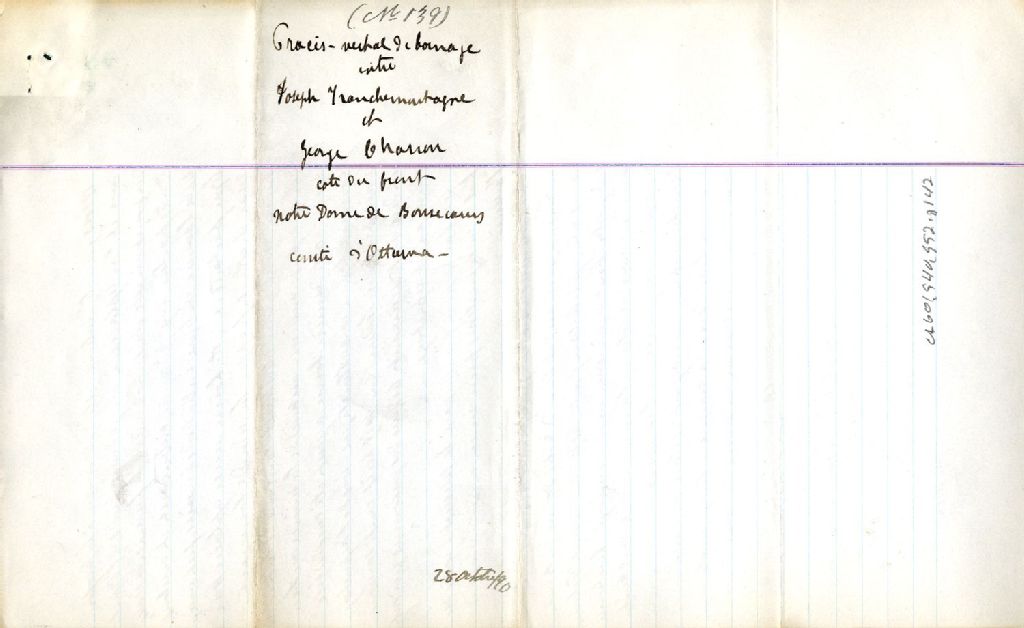 (No 139)
Procès-verbal de bornage
entre
Joseph Tranchemontagne
et
George Charron
coté du front
Notre Dame de Bonsecours
comté d'Ottawa -
28 octobre/90